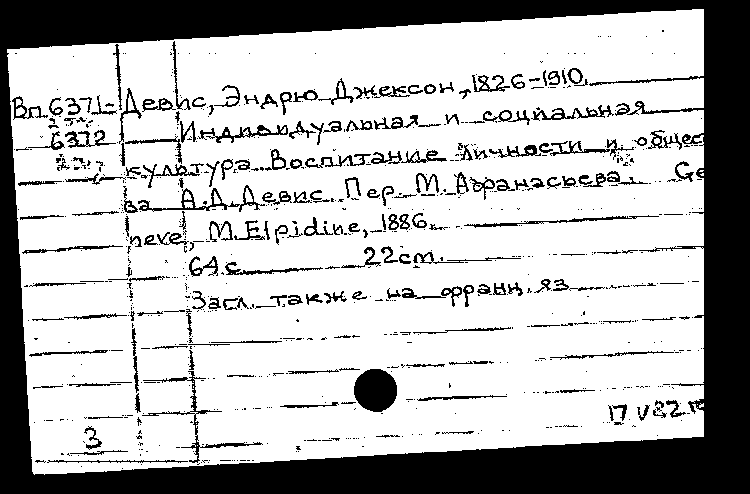 Вп 6371- Девис, Эндрю Джексон, 1826-1910.
6372 Индивидуальная и социальная
культура Воспитание личности и общес
ва А.Д. Девис. Пер. М. Афанасьева. Ge
neve, M. Elpidine, 1886.
64 с 22 cm.
Загл. также на франц. яз
17 V 82
3